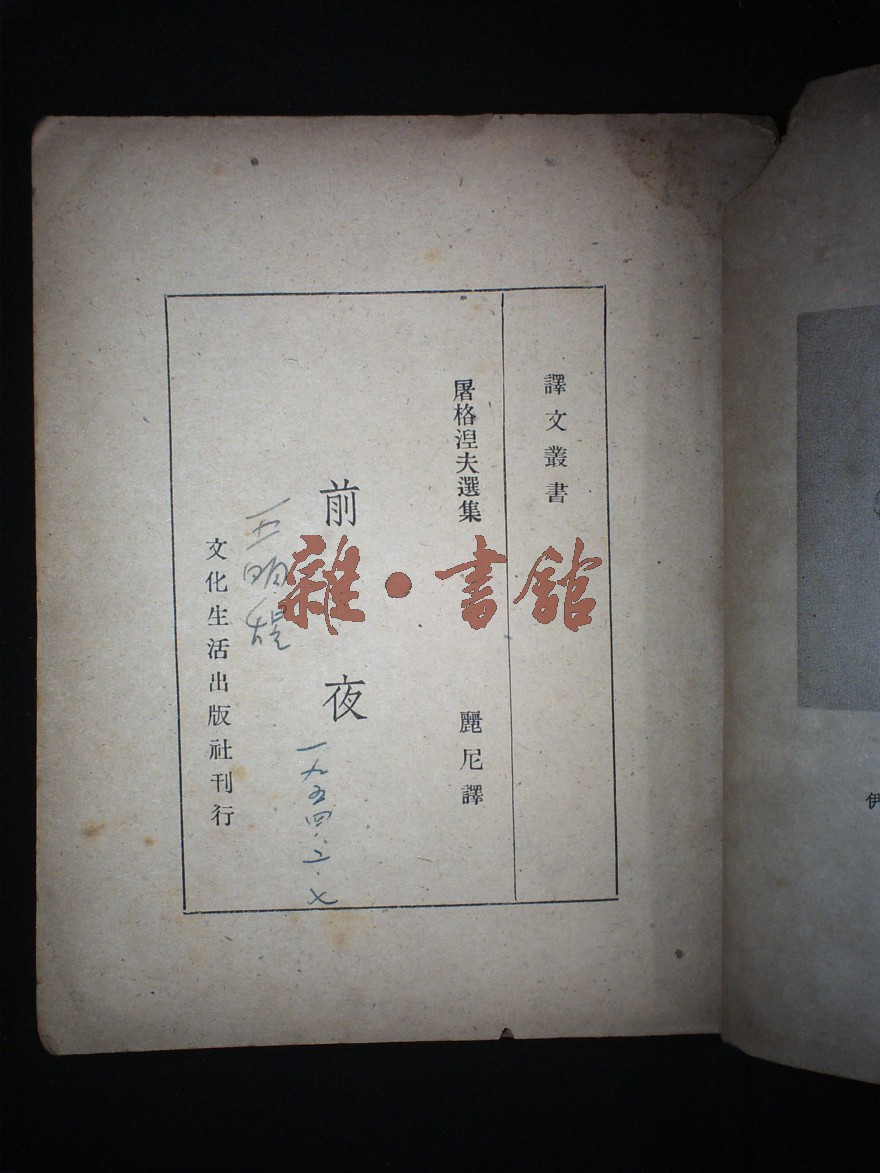 譯文叢書
屠格涅夫選集
麗尼譯
前夜
一九五四·二·七
文化生活出版社刊行
雜·書舘
伊